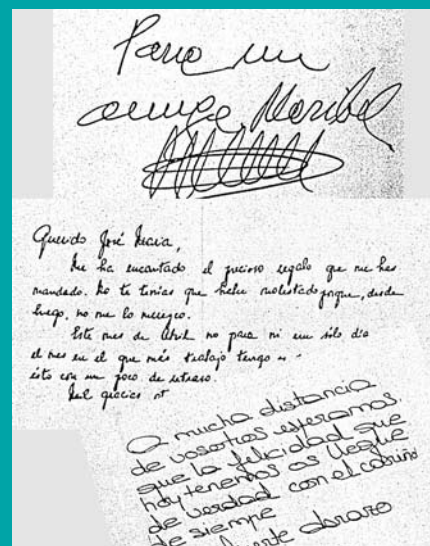 Para mi
amiga Maribel
Querido José María,
Me ha encantado el precioso regalo que me has
mandado. No te tenías que haber molestado porque, desde
luego, no me lo merezco.
Este mes de Abril no para ni un sólo día
el mes en el que más trabajo tengo
esto con un poco de retraso.
Mil gracias
A mucha distancia
de vosotros esperamos,
que la felicidad que
hoy tenemos os llegue
de verdad con el cariño
de siempre
abrazo